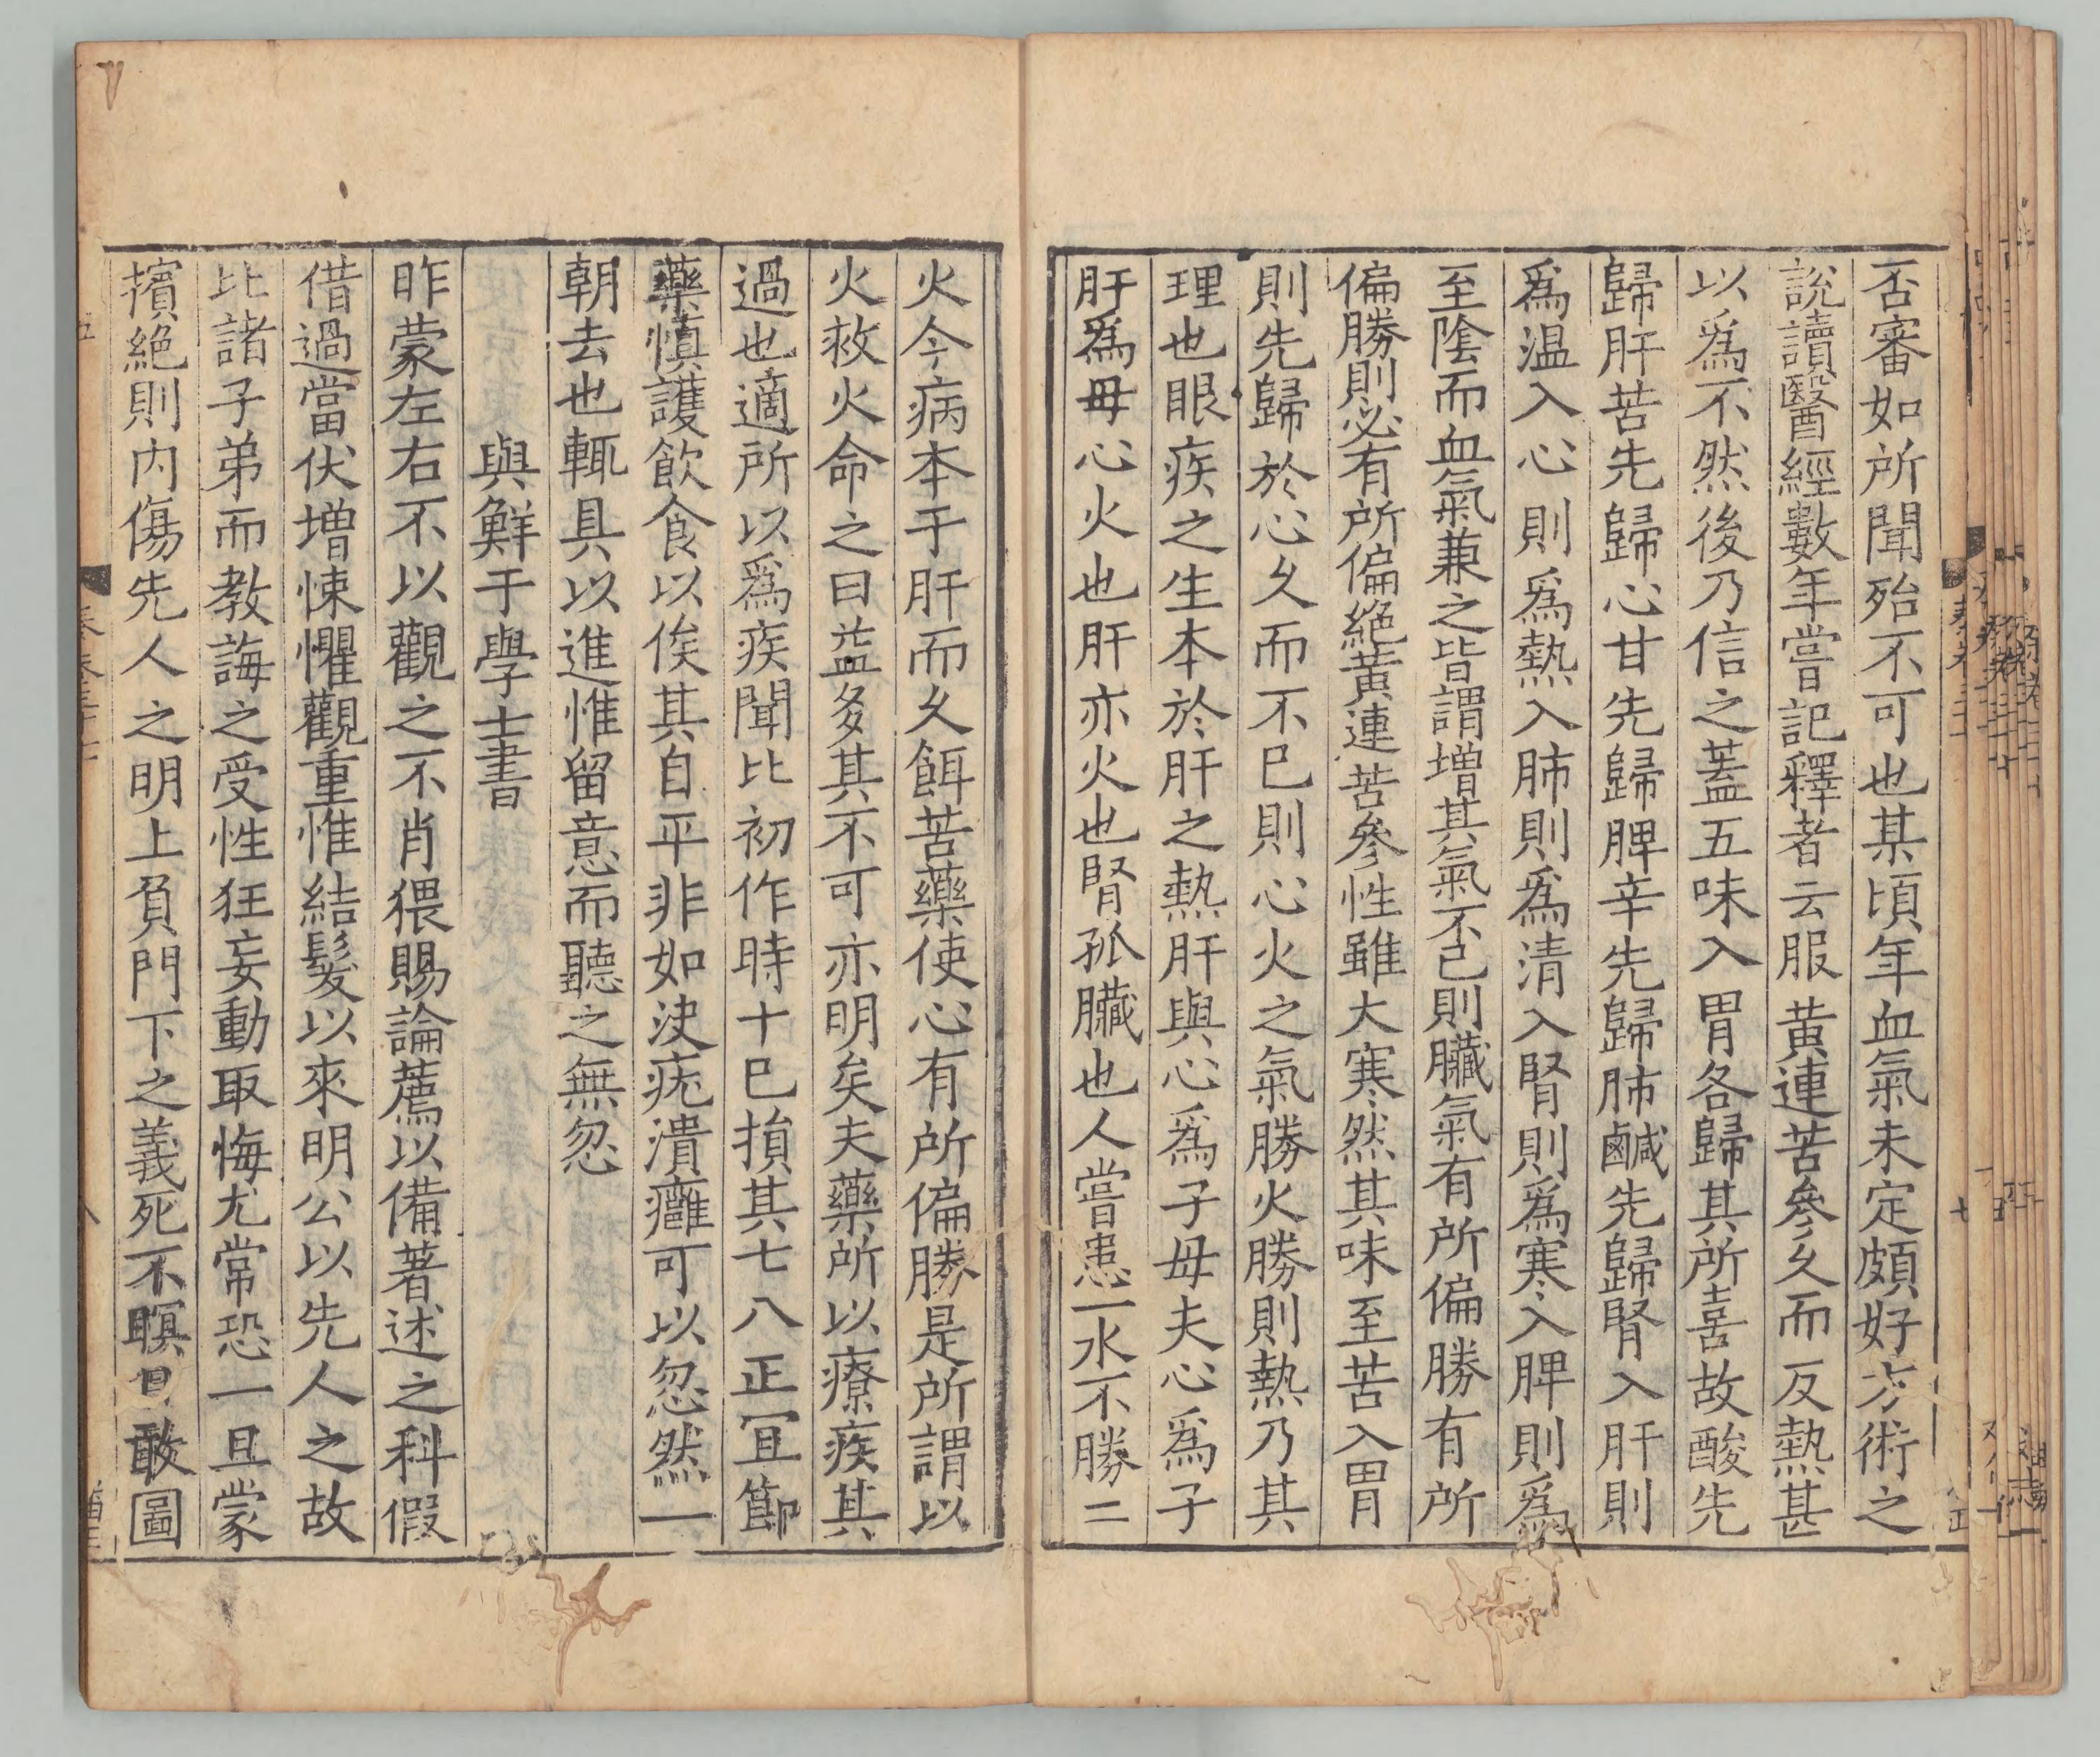 否審如所聞殆不可也某頃年血氣未定頗好方術之
說讀醫經數年嘗記釋者云服黃連苦參久而反熱甚
以爲不然後乃信之蓋五味入胃各歸其所喜故酸先
歸肝苦先歸心甘先歸脾辛先歸肺鹹先歸腎入肝則
爲温入心則爲熱入肺則爲清入腎則爲寒入脾則爲
至陰而血氣兼之皆謂増其氣不已則臟氣有所偏勝有所
偏勝則必有所偏絕黃連苦參性雖大寒然其味至苦入胃
則先歸於心久而不已則心火之氣勝火勝則熱乃其
理也眼疾之生本於肝之熱肝與心爲子母夫心爲子
肝爲母心火也肝亦火也腎孤臟也人嘗患一水不勝二
火今病本于肝而久餌苦藥使心有所偏勝是所謂以
火救火命之曰益多其不可亦明矣夫藥所以療疾其
過也適所以爲疾聞比初作時十巳損其七八正宜節
藥愼護飲食以俟其自平非如決疣潰癰可以忽然一
朝去也輒具以進惟留意而聽之無忽
與鮮于學士書
昨蒙左右不以觀之不肖猥賜論薦以備著述之科假
借過當伏増悚懼觀重惟結髮以來明公以先人之故
比諸子弟而教誨之受性狂妄動取悔尤常恐一旦蒙
擯絕則内傷先人之明上負門下之義死不瞑目敢圖